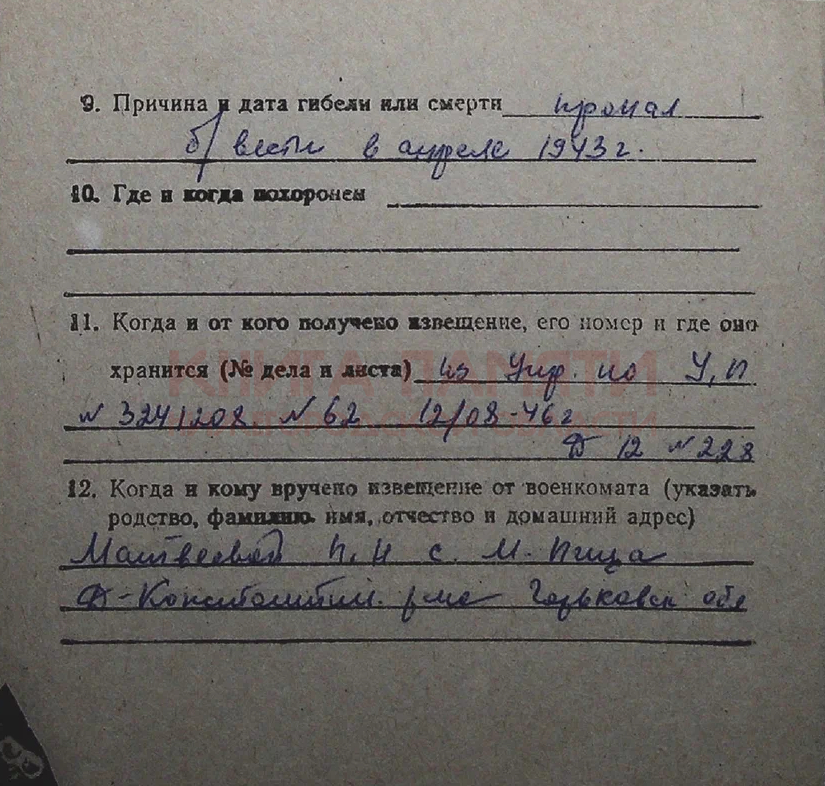 9. Причина и дата гибели или смерти пропал
б/ вести в апреле 1943 г.
10. Где и когда похоронен
11. Когда и от кого получено извещение, его номер и где оно
хранится (№ дела и листа) из Упр. по У, П
КНИГА ПАМЯТИ
№ 3241208 № 62 12/08-46 г
Д 12 № 228
12. Когда и кому вручено извещение от военкомата (указать
родство, фамилию, имя, отчество и домашний адрес)
Матвеевой П. Н с. М. Пица
Д-Константин. р-на Горьковск обл